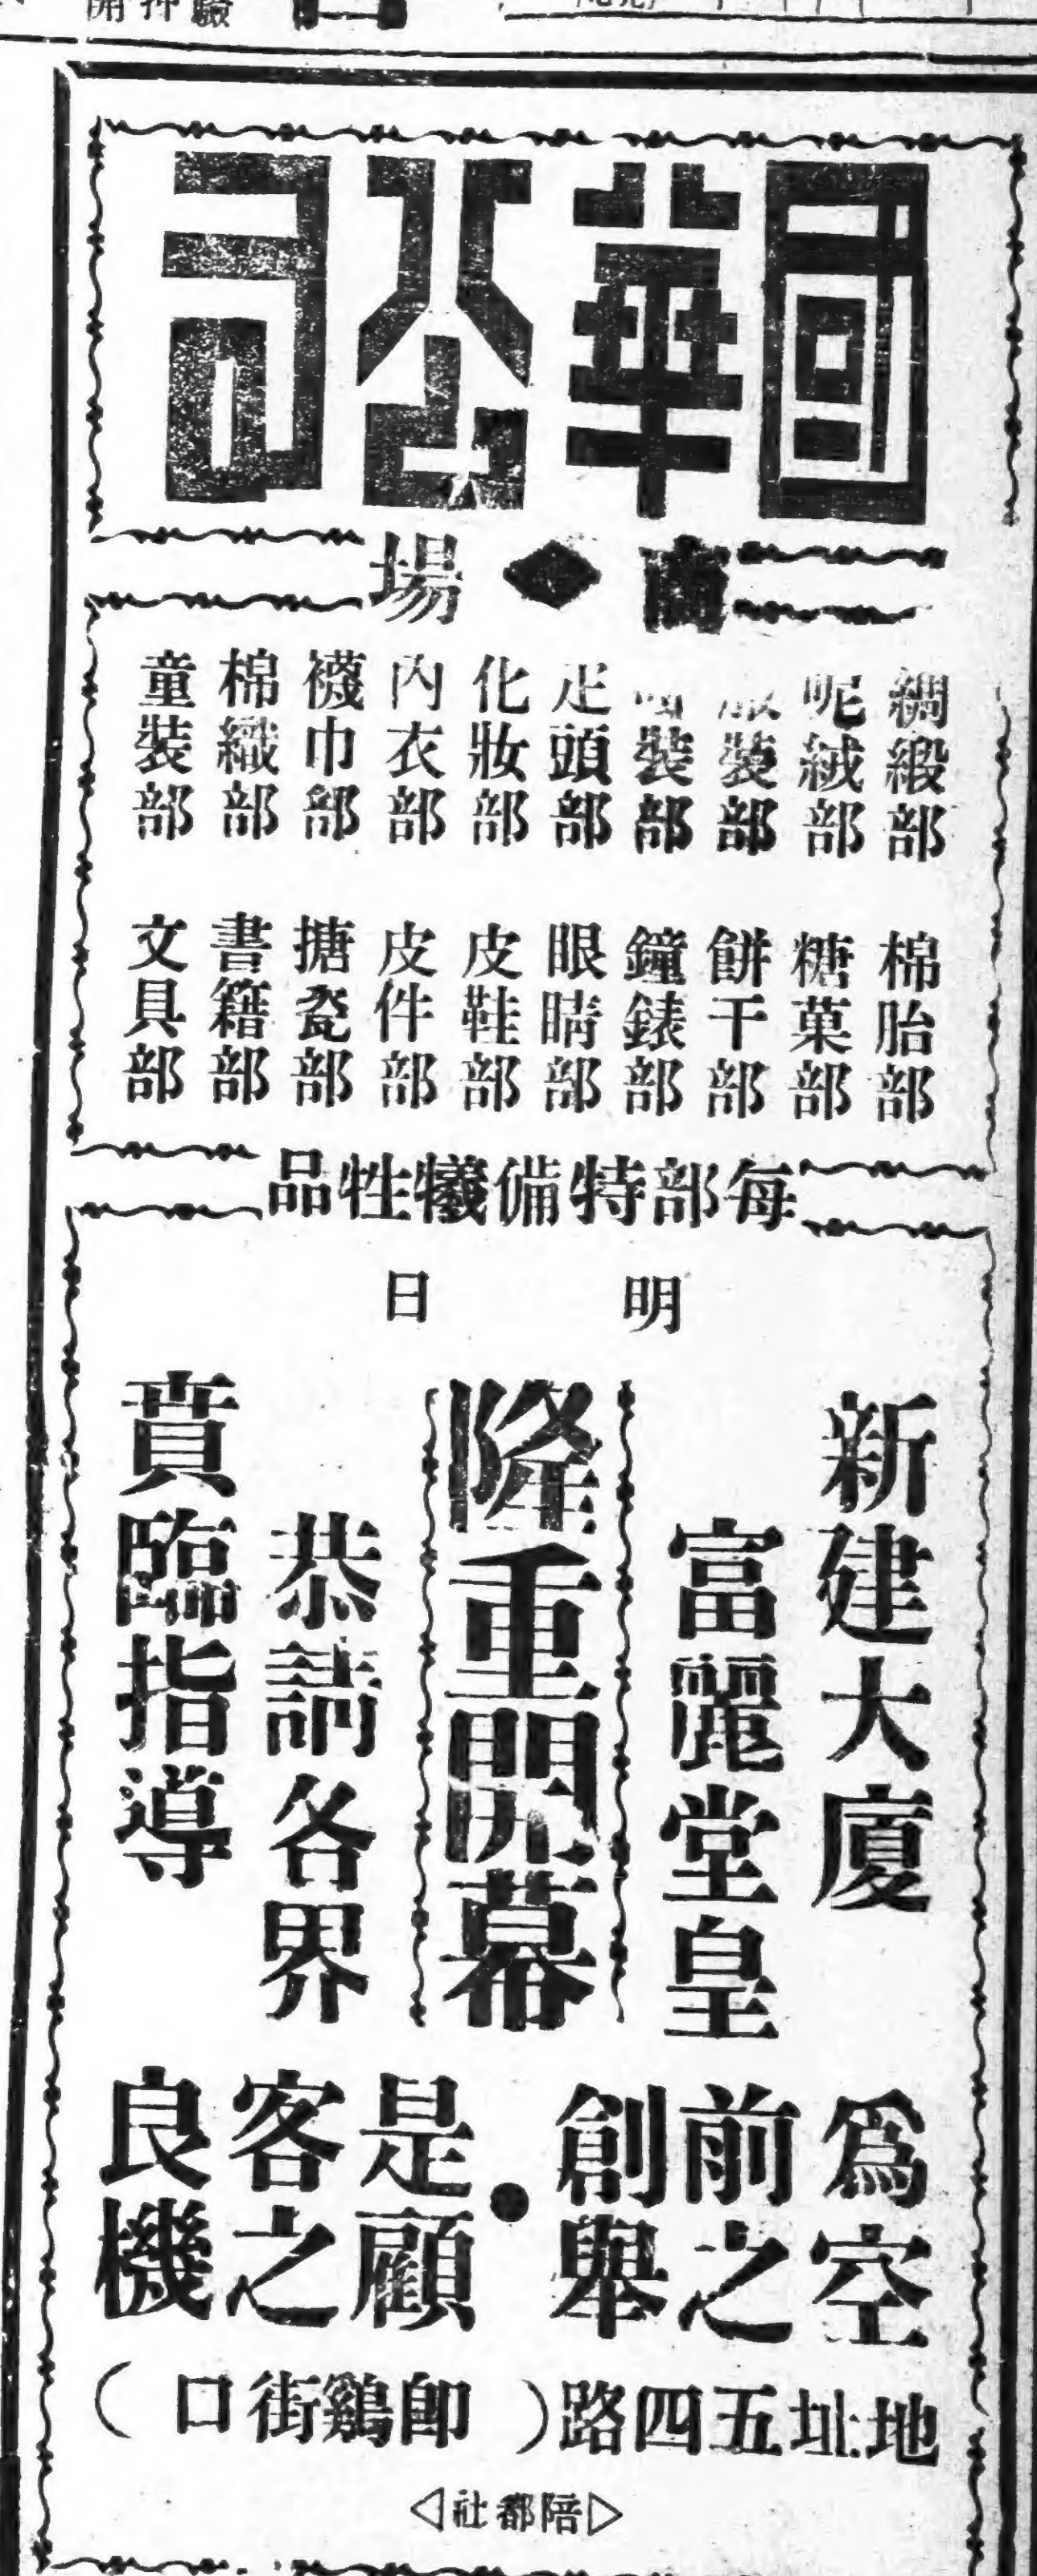 國華公司
商◆場
綢緞部
呢絨部
裝部
裝部
疋頭部
化妝部
內衣部
襪巾部
棉織部
童裝部
棉胎部
糖菓部
餅干部
鐘錶部
眼睛部
皮鞋部
皮件部
搪瓷部
書籍部
文具部
每部特備犧牲品
明日
新建大廈
富麗堂皇
隆重開幕
恭請各界
賁臨指導
爲空前之創舉
●
是顧客之良機
地址五四路(即鷄街口)
▷陪都社◁